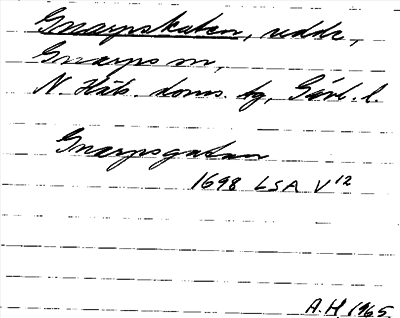 Gnarpskaten, udde,
Gnarps sn,
N. Häls. doms. tg, Gävl. l.
Gnarpsgatan
1698 LSA V 12
A.H. 1965.